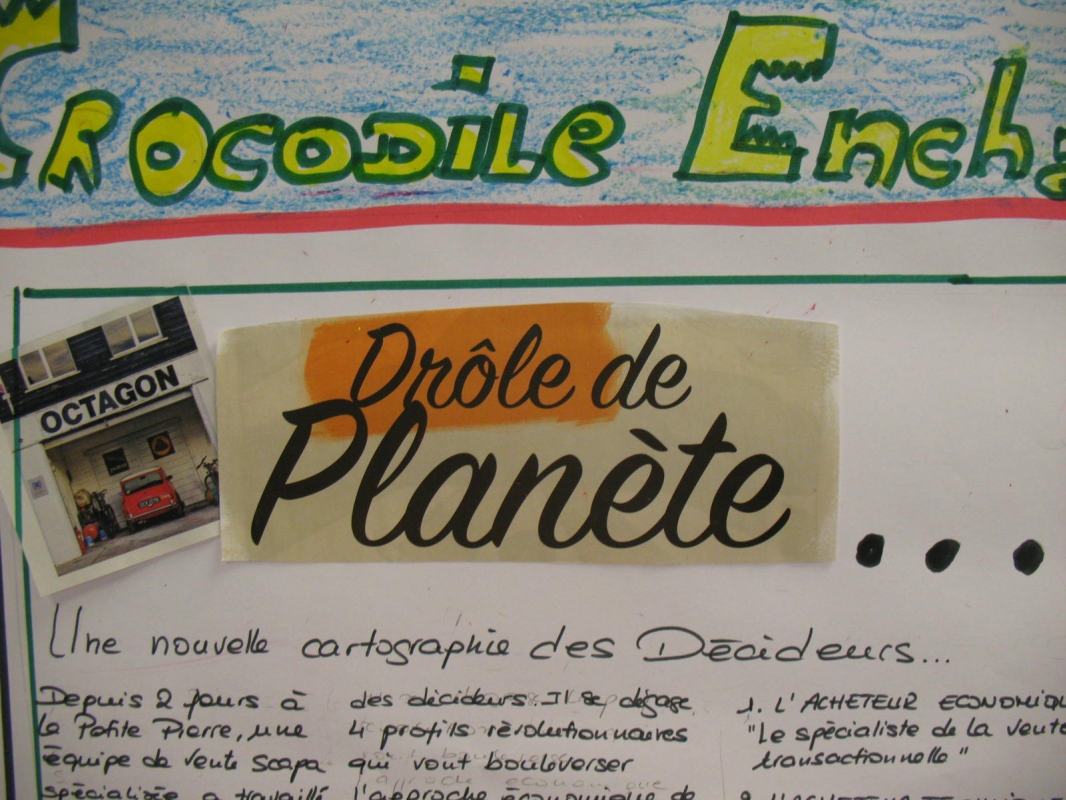 Crocodile Ench
OCTAGON
Drôle de
Planète
...
Une nouvelle cartographie des Décideurs...
Depuis 2 jours à
la Petite Pierre, une
équipe de vente scapa
spécialisée a travaillé
des décideurs. Il se dégage
4 profils révolutionnaires
qui vont bouleverser
l'approche économique de
1. L'ACHETEUR ECONOMIQU
"Le spécialiste de la vente
transactionnelle"